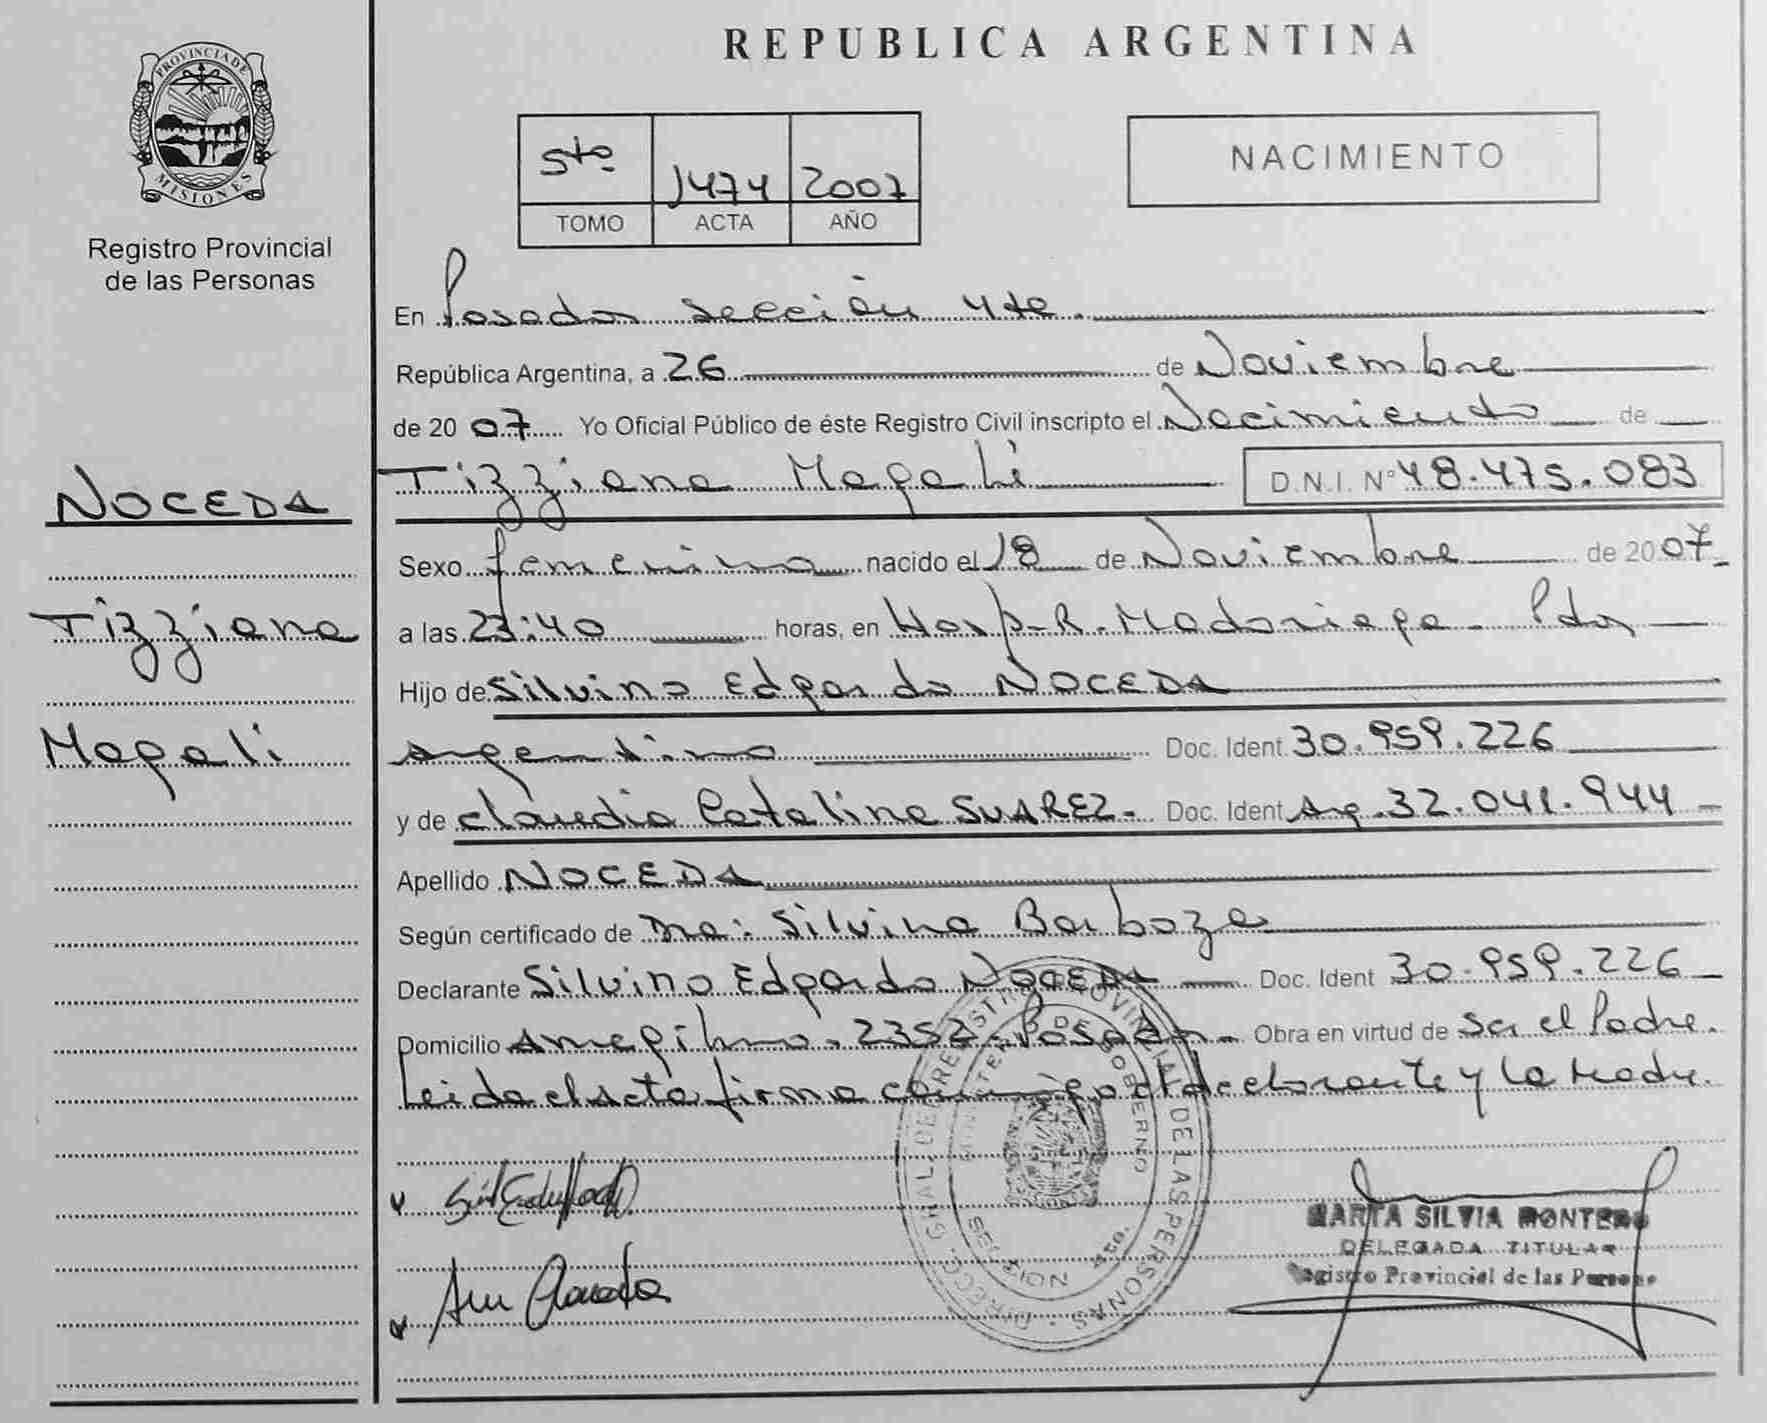 REPUBLICA ARGENTINA
PROVINCIA DE
MISIONES
Registro Provincial
de las Personas
5to 1474 2007
TOMO ACTA AÑO
NACIMIENTO
En Posadas sección 4ta.
República Argentina, a 26 de Noviembre
de 2007 Yo Oficial Público de éste Registro Civil inscripto el Nacimiento de
Tizziana Magali D.N.I. N° 48.475.083
NOCEDA
Tizziana
Magali
Sexo femenino nacido el 18 de Noviembre de 2007
a las 23:40 horas, en Hosp. R. Madariaga - Pdas
Hijo de Silvino Edgardo NOCEDA
argentino Doc. Ident 30.959.226
y de Claudia Catalina SUAREZ. Doc. Ident Arg. 32.041.944
Apellido NOCEDA
Según certificado de Dra: Silvina Barboza
Declarante Silvino Edgardo NOCEDA Doc. Ident 30.959.226
Domicilio 2352 - Posadas - Obra en virtud de ser el Padre.
Leida el acta firma conmigo el declarante y la Madre.
DIRECC. GRAL. DEL REGISTRO PROVINCIAL DE LAS PERSONAS
MINISTERIO DE GOBIERNO
4ta.
MARTA SILVIA MONTERO
DELEGADA TITULAR
Registro Provincial de las Personas